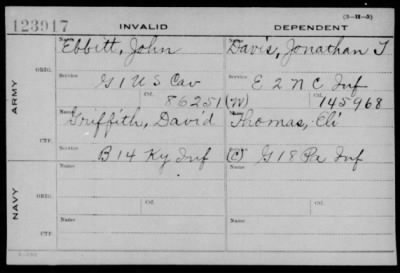 (3-H-5)
123917 INVALID DEPENDENT
Name Name
Ebbitt, John Davis, Jonathan T
ORIG. Service Service
G 1 U S Cav E 2 N C Inf
Ctf. Ctf.
86251 (W) 145968
ARMY
Name Name
Griffith, David Thomas, Eli
CTF. Service Service
B 14 Ky Inf (C) G 18 Pa Inf
Name Name
ORIG. Service Service
Ctf. Ctf.
NAVY
Name Name
CTF. Service Service